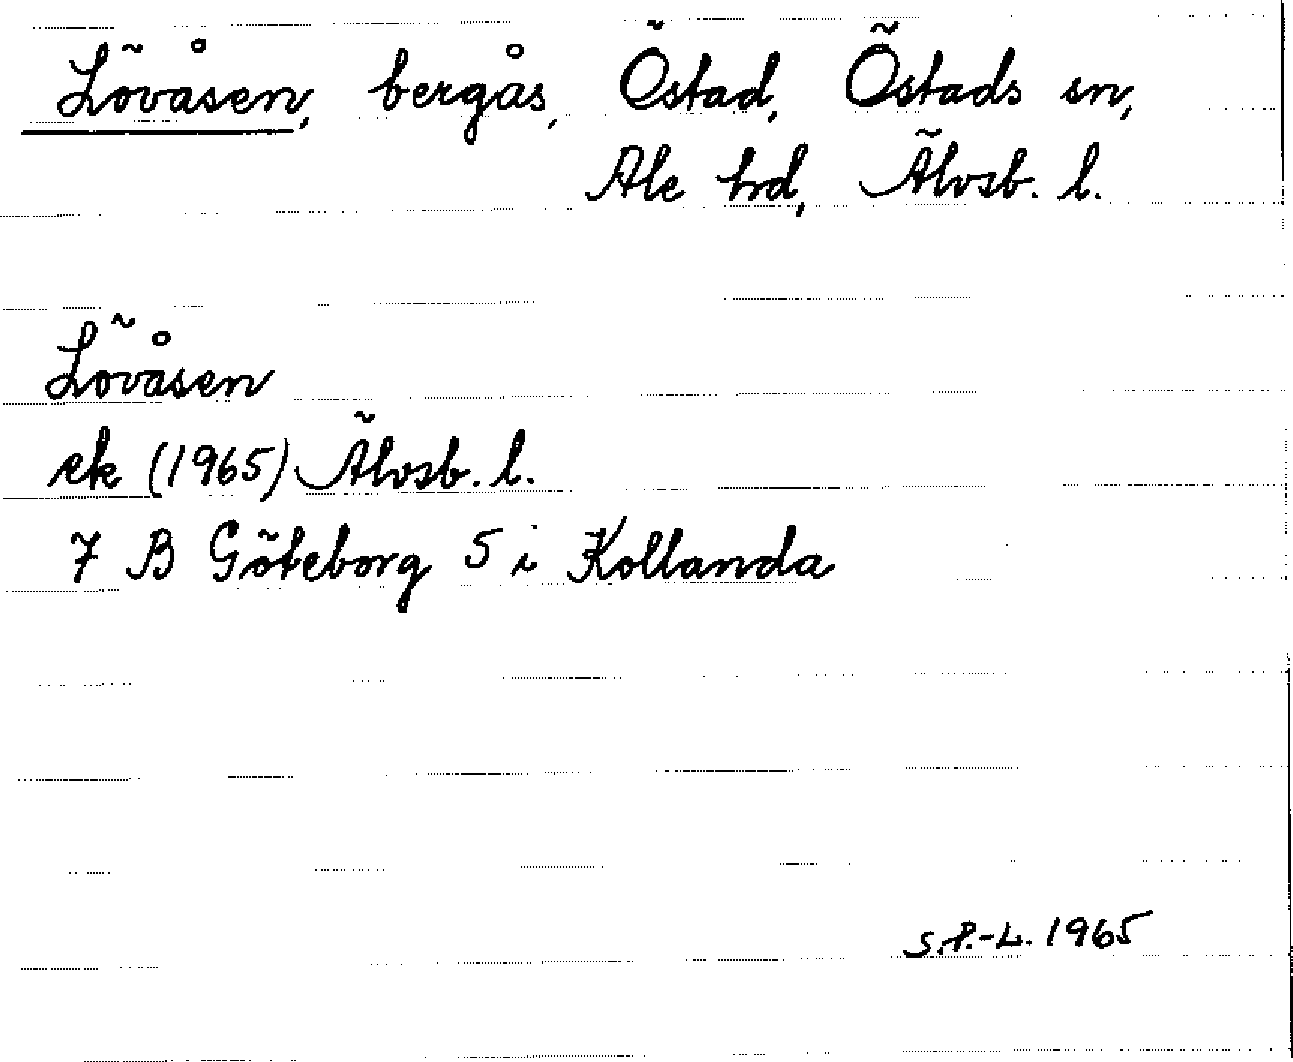 Lövåsen, bergås, Östad, Östads sn,
Ale hd, Älvsb. l.
Lövåsen
ek (1965) Älvsb. l.
7 B Göteborg 5 i Kollanda
S.P.-L. 1965